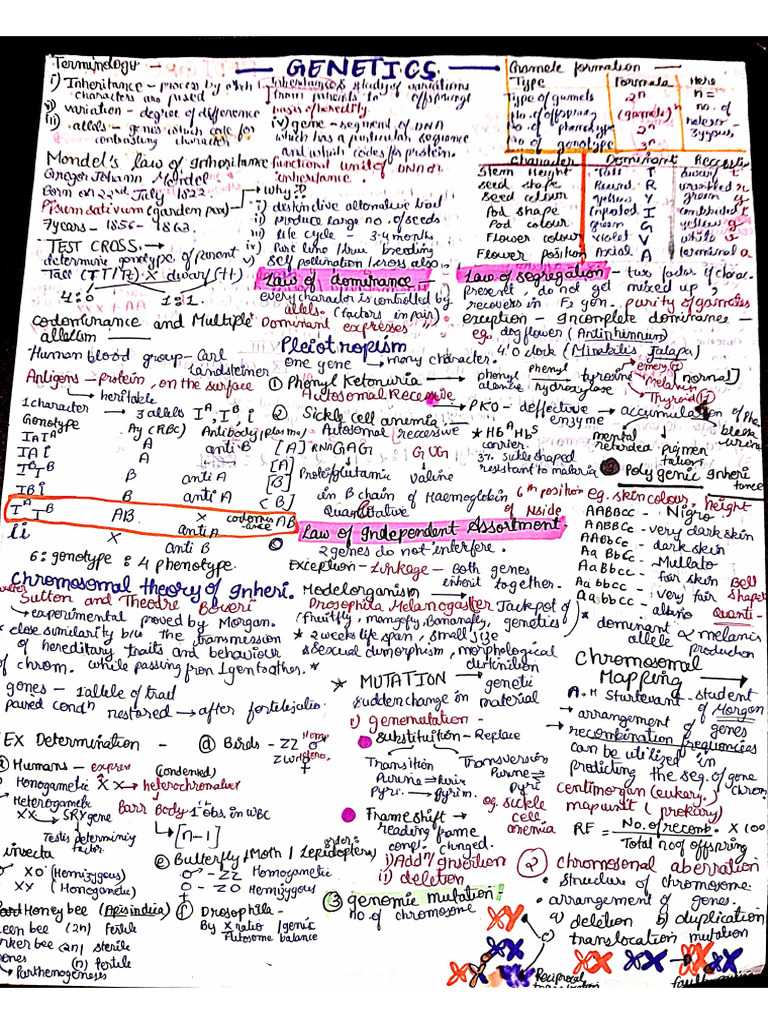 GENETICS
Terminology —
i) Inheritance – process by which
characters are passed
ii) variation – degree of difference
iii) allels – genes which code for
contrasting character
Inheritance & study of variations
from parents to offsprings
basis of heredity
iv) gene – segment of DNA
which has a particular sequence
and which codes for protein.
functional unit of DNA
inheritance.
Gamete formation —
Type Formula Here
Type of gamets 2^n n =
No. of offspring (gamete)^n no. of
No. of phenotype 2^n hetero-
No. of genotype 3^n zygous
Character Dominant Recessive
Stem Height Tall T Dwarf t
Seed shape Round R wrinkled r
Seed colour Yellow Y green y
Pod shape Inflated I constricted i
Pod colour Green G yellow g
Flower colour violet V white v
Flower position Axial A terminal a
Mendel's law of Inheritance
Gregor Johann Mendel
Born on 22nd July 1822
Pisum sativum (garden pea)
7 years – 1856 – 1863
Why??
i) distinctive alternative trait
ii) Produce large no. of seeds
iii) life cycle – 3-4 months
iv) Pure line / true breeding
v) Self pollination / cross also
TEST CROSS.
determine genotype of parent
Tall (TT/Tt) X dwarf (tt)
4:0 1:1
Law of dominance –
every character is controlled by
allels. (factors in pair)
Dominant expresses
Law of segregation – two factor if charac.
present, do not get mixed up,
recovers in F2 gen. purity of gametes
exception – Incomplete dominance —
eg. dog flower (Antirrhinum)
4'O clock (Mirabilis Jalapa)
codominance and Multiple
allelism —
Human blood group – Carl
Landsteiner
Antigens – protein, on the surface
→ heritable
1 character → 3 allels I^A, I^B, i
Genotype Ag (RBC) Antibody (plasma)
I^A I^A A anti B [A]
I^A i A
I^B I^B B anti A [B]
I^B i B anti A [B]
I^A I^B AB X codominance AB
ii X anti A
anti B
6: genotype : 4 phenotype.
Pleiotropism
one gene → many character.
① Phenyl Ketonuria → phenyl alanine phenyl hydroxylase → tyrosine
[normal]
Melanin
Thyroid
Autosomal Recessive
PKU – deffective enzyme → accumulation of Phe
mental retarded
pigmentation
② Sickle cell anemia —
Autosomal recessive
RNA GAG GUG
Protein glutamic valine
in B chain of Haemoglobin 6th position
Quantitative
* Hb^A Hb^S
carrier.
sickle shaped
resistant to malaria
Polygenic Inheritance
eg. skin colour, height
AABBCC – Nigro
AABBCc – very dark skin
AABbCc – dark skin
AaBbCc – Mullato
AaBbcc – fair skin
Aabbcc – very fair
aabbcc – albino
Bell
Shaped
Quanti-
* dominant ∝ melanin
allele production
Law of Independent Assortment.
2 genes do not interfere.
Exception – Linkage – Both genes
inherit together.
Chromosomal theory of Inheri.
Sutton and Theodre Boveri
→ experimental proved by Morgan.
* close similarity b/w the transmission
of hereditary traits and behaviour
of chrom. while passing from 1 gen to other *
genes – 1 allele of trait
paired condn restored → after fertelizatio
Model organism →
Drosophila Melanogaster Jackpot of
(fruitfly, mangofly, Bananafly, genetics)
* 2 weeks life span, small size
* Sexual dimorphism, morphological
* MUTATION → genetic
sudden change in material
1) gene mutation –
Substitution – Replace
Transition Transversion
Purine ⇌ Purine
Pyri. → pyrim.
Purine ⇌ Pyri
eg. sickle
cell
anemia
Frame shift →
reading frame
comp. changed.
i) Addn / insertion
ii) deletion
③ genomic mutation:
no. of chromosome
Chromosomal
Mapping
A.H Sturtevant – student
of Morgan
→ arrangement of genes
→ recombination frequencies
can be utilized in
predicting the seq. of gene
chrom.
Centimorgan (eukary.)
map unit (prokary)
RF = No. of recomb. X 100
Total no of offspring
② chromosomal aberration
• structure of chromosome.
• arrangement of genes.
a) deletion b) duplication
translocation mutation
Reciprocal
EX Determination –
Humans –
(condensed)
Homogametic XX → heterochromatin
Heterogametic
XY → SRY gene
Testis determining
factor.
Barr Body 1st obs. in WBC
→ [n-1]
ⓓ Birds – ZZ ♂
ZW ♀
ⓔ Butterfly, Moth / Lepidoptera order:
♂ – ZZ Homogametic
♀ – ZO Hemizygous
insecta
XO (Hemizygous)
XX (Homogametic)
Honey bee (Apis indica)
ueen bee (2n) Fertile
rker bee (2n) sterile
ones (n) Fertile
→ Parthenogeneses
ⓕ Drosophila –
By X ratio / genic
Autosome balance